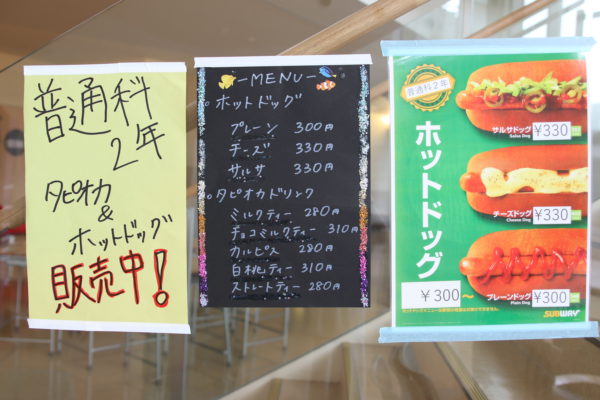 普通科
2年
タピオカ
&
ホットドッグ
販売中!
-MENU-
。ホットドッグ
プレーン 300円
チーズ 330円
サルサ 330円
。タピオカドリンク
ミルクティー 280円
チョコミルクティー 310円
カルピス 280円
白桃ティー 310円
ストレートティー 280円
普通科2年
ホットドッグ
¥300～
サルサドッグ ¥330
Salsa Dog
チーズドッグ ¥330
Cheese Dog
プレーンドッグ ¥300
Plain Dog
SUBWAY